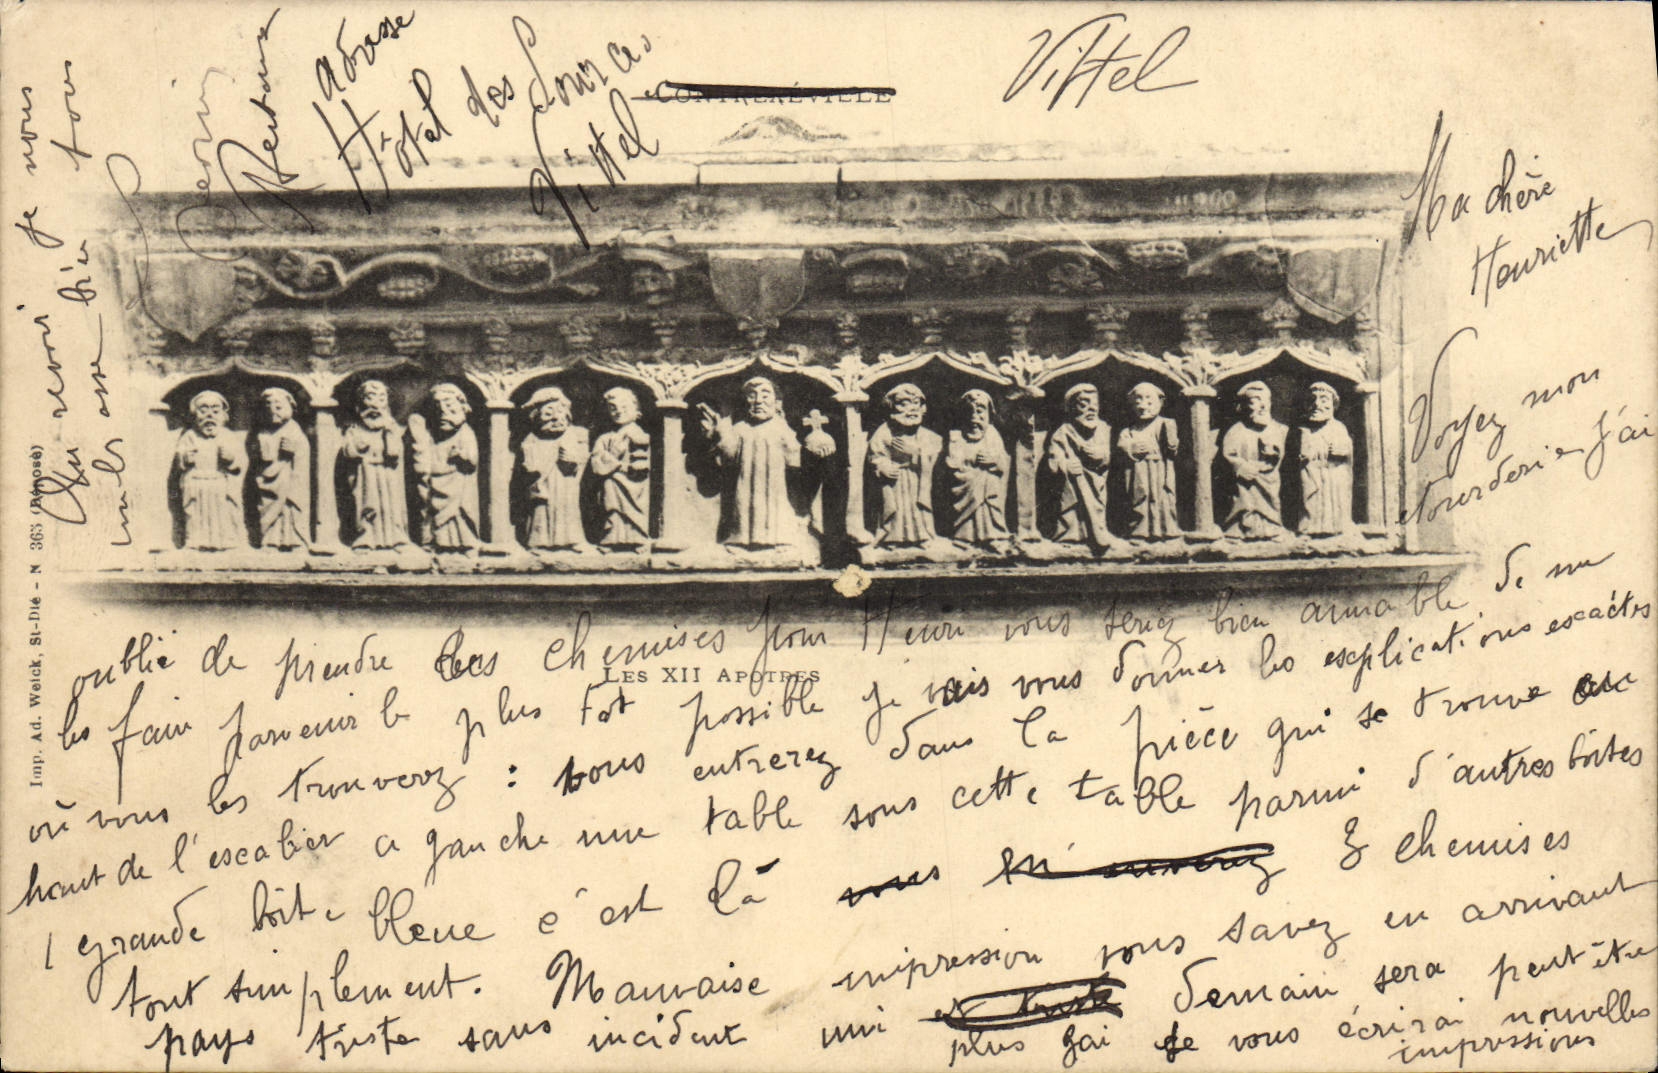 Vittel
CONTREXÉVILLE
Ma chère
Henriette
Voyez mon
étourderie j'ai
oublié de prendre des chemises pour Henri vous seriez bien aimable de me
les faire parvenir le plus tôt possible je vais vous donner les explications exactes
où vous les trouverez : vous entrerez dans la pièce qui se trouve au
haut de l'escalier a gauche une table sous cette table parmi d'autres boites
1 grande boite bleue c'est là vous en 3 chemises
tout simplement. Mauvaise impression vous savez en arrivant
pays triste sans incident et triste demain sera peut être
plus gai je vous écrirai nouvelles
impressions
Au revoir je vous
embrasse bien tous
adresse
Hôtel des Sources
Vittel
LES XII APOTRES
Imp. Ad. Weick, St-Dié - N 363 (Déposé)